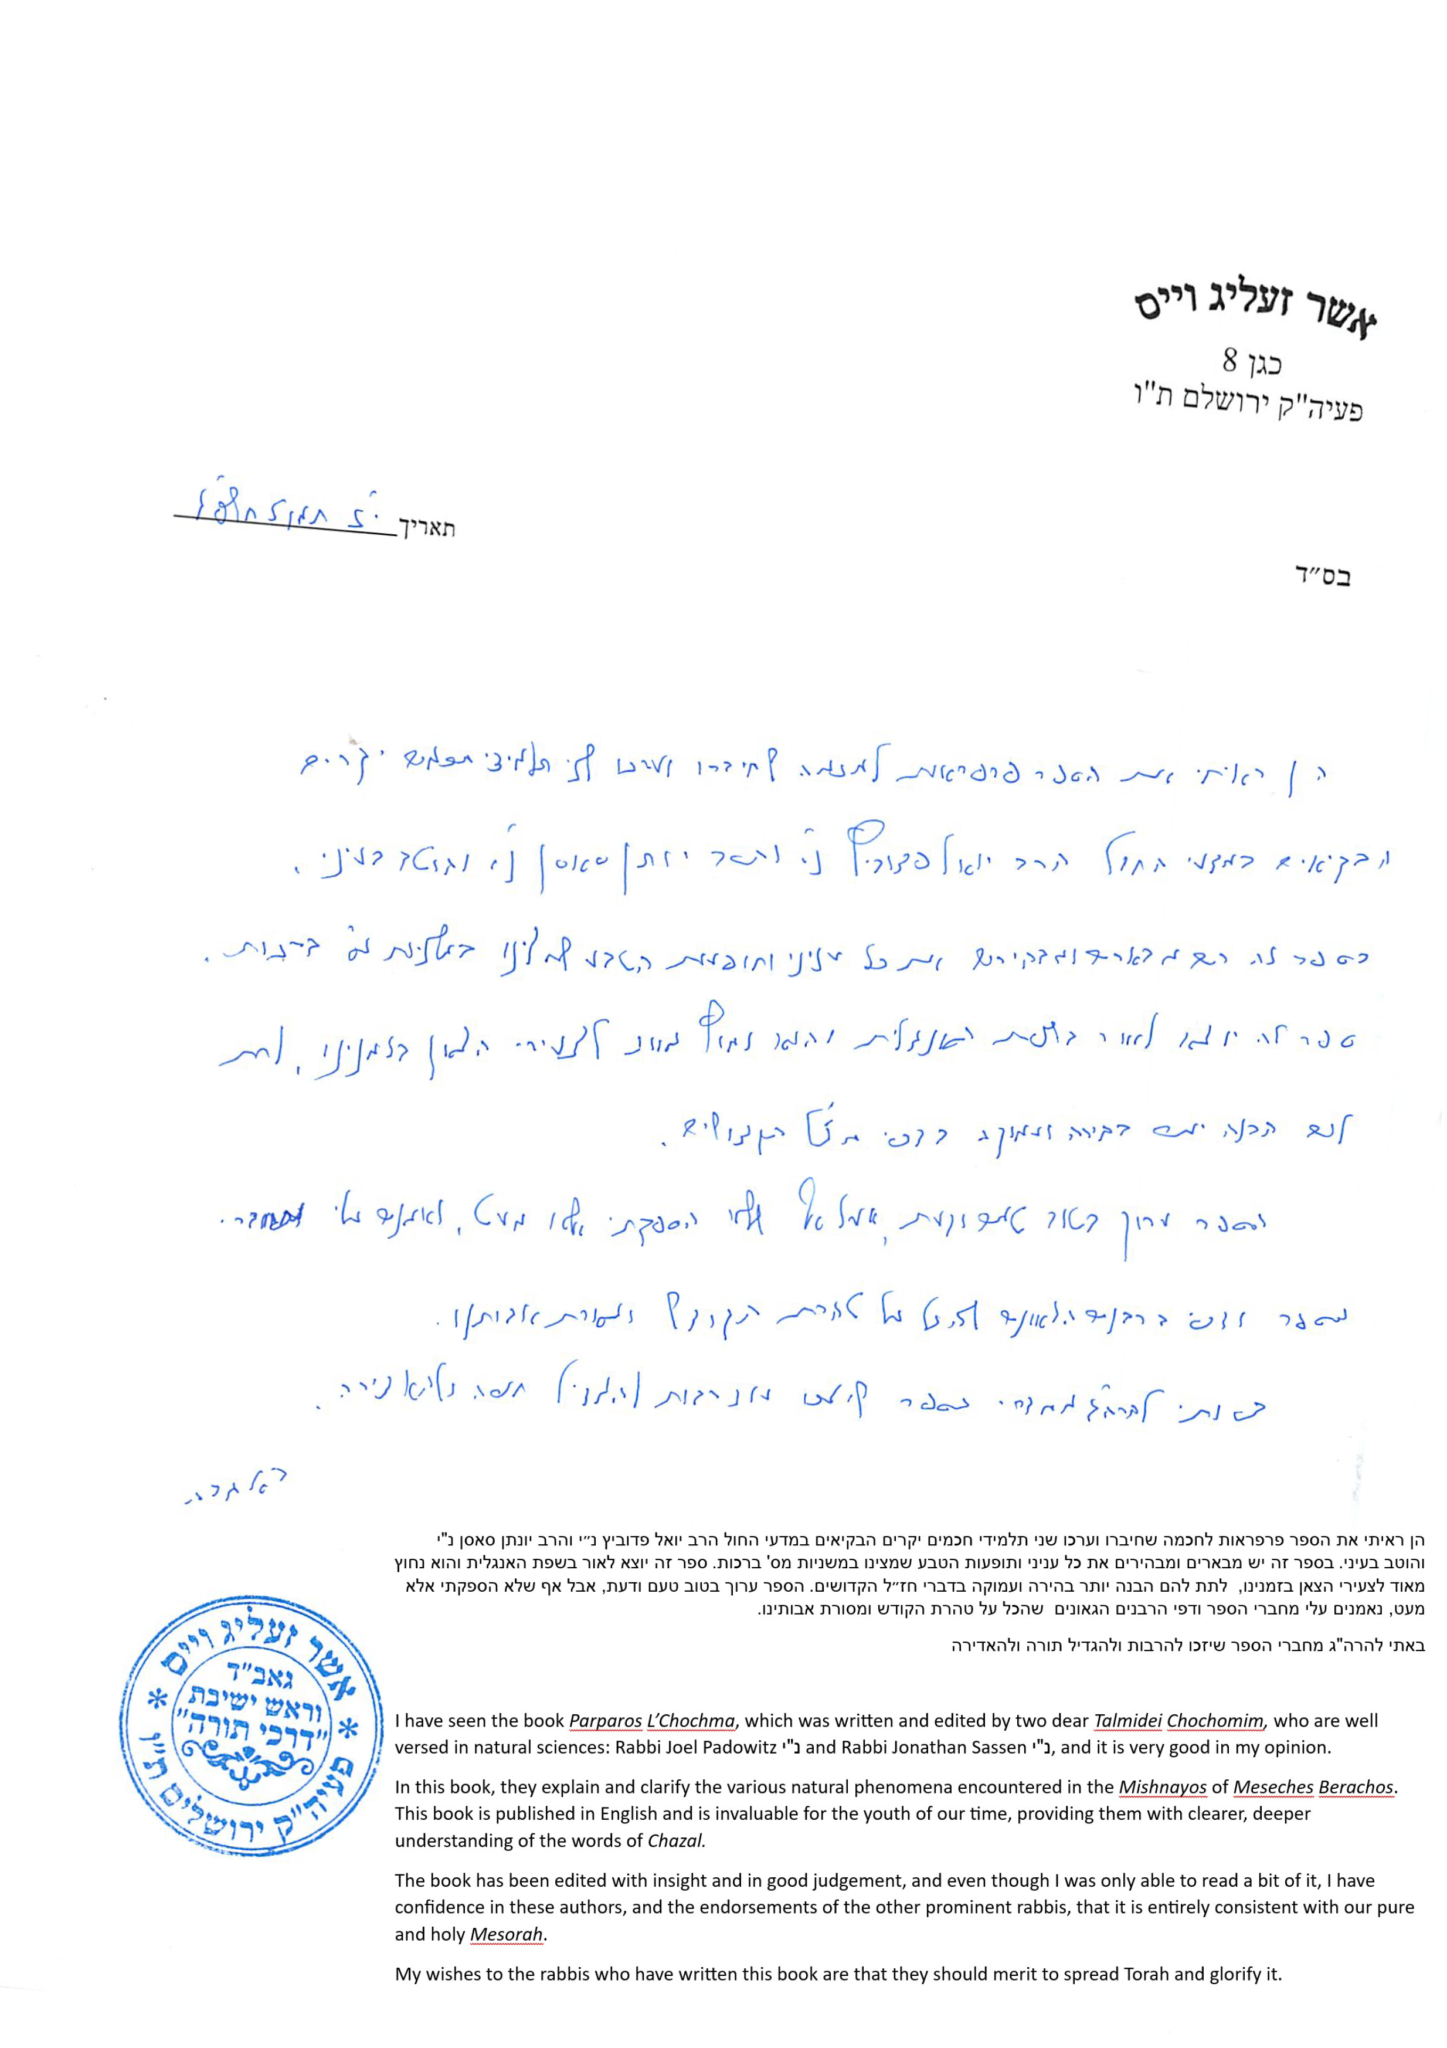 אשר זעליג ווייס
כגן 8
פעיה"ק ירושלם ת"ו
תאריך י"ז תמוז תשפ"ג
בס״ד
הן ראיתי את הספר פרפראות לחכמה שחיברו וערכו שני תלמידי חכמים יקרים
הבקיאים במדעי החול הרב יואל פדוביץ נ"י והרב יונתן סאסן נ"י והוטב בעיני.
בספר זה הם מבארים ומבהירים את כל עניני ותופעות הטבע שמצינו במשניות מס' ברכות.
ספר זה יוצא לאור בשפת האנגלית והוא נחוץ מאוד לצעירי הצאן בזמנינו, לתת
להם הבנה יותר בהירה ועמוקה בדברי חז"ל הקדושים.
הספר ערוך בטוב טעם ודעת, אבל אף שלא הספקתי אלא מעט, נאמנים עלי מחברי
הספר ודפי הרבנים הגאונים שהכל על טהרת הקודש ומסורת אבותינו.
ברכתי להרה"ג מחברי הספר שיזכו להרבות ולהגדיל תורה ולהאדירה.
הן ראיתי את הספר פרפראות לחכמה שחיברו וערכו שני תלמידי חכמים יקרים הבקיאים במדעי החול הרב יואל פדוביץ נ״י והרב יונתן סאסן נ"י
והוטב בעיני. בספר זה יש מבארים ומבהירים את כל עניני ותופעות הטבע שמצינו במשניות מס' ברכות. ספר זה יוצא לאור בשפת האנגלית והוא נחוץ
מאוד לצעירי הצאן בזמנינו, לתת להם הבנה יותר בהירה ועמוקה בדברי חז״ל הקדושים. הספר ערוך בטוב טעם ודעת, אבל אף שלא הספקתי אלא
מעט, נאמנים עלי מחברי הספר ודפי הרבנים הגאונים שהכל על טהרת הקודש ומסורת אבותינו.
באתי להרה"ג מחברי הספר שיזכו להרבות ולהגדיל תורה ולהאדירה
אשר זעליג ווייס
גאב"ד
וראש ישיבת
"דרכי תורה"
פעיה"ק ירושלים ת"ו
I have seen the book Parparos L’Chochma, which was written and edited by two dear Talmidei Chochomim, who are well
versed in natural sciences: Rabbi Joel Padowitz נ"י and Rabbi Jonathan Sassen נ"י, and it is very good in my opinion.
In this book, they explain and clarify the various natural phenomena encountered in the Mishnayos of Meseches Berachos.
This book is published in English and is invaluable for the youth of our time, providing them with clearer, deeper
understanding of the words of Chazal.
The book has been edited with insight and in good judgement, and even though I was only able to read a bit of it, I have
confidence in these authors, and the endorsements of the other prominent rabbis, that it is entirely consistent with our pure
and holy Mesorah.
My wishes to the rabbis who have written this book are that they should merit to spread Torah and glorify it.